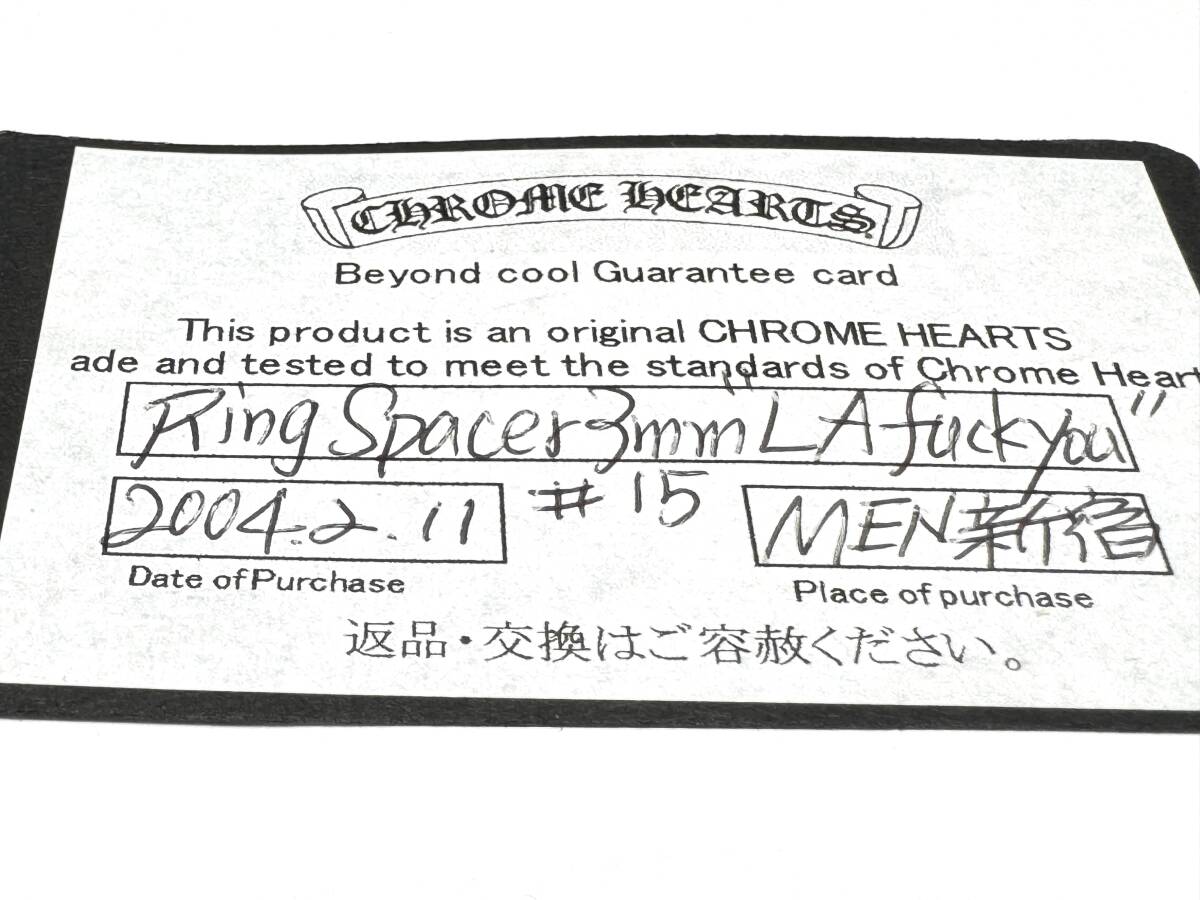 CHROME HEARTS
Beyond cool Guarantee card
This product is an original CHROME HEARTS
ade and tested to meet the standards of Chrome Heart
Ring Spacer 3mm "LA fuck you"
2004.2.11 #15 MEN新宿
Date of Purchase Place of purchase
返品・交換はご容赦ください。